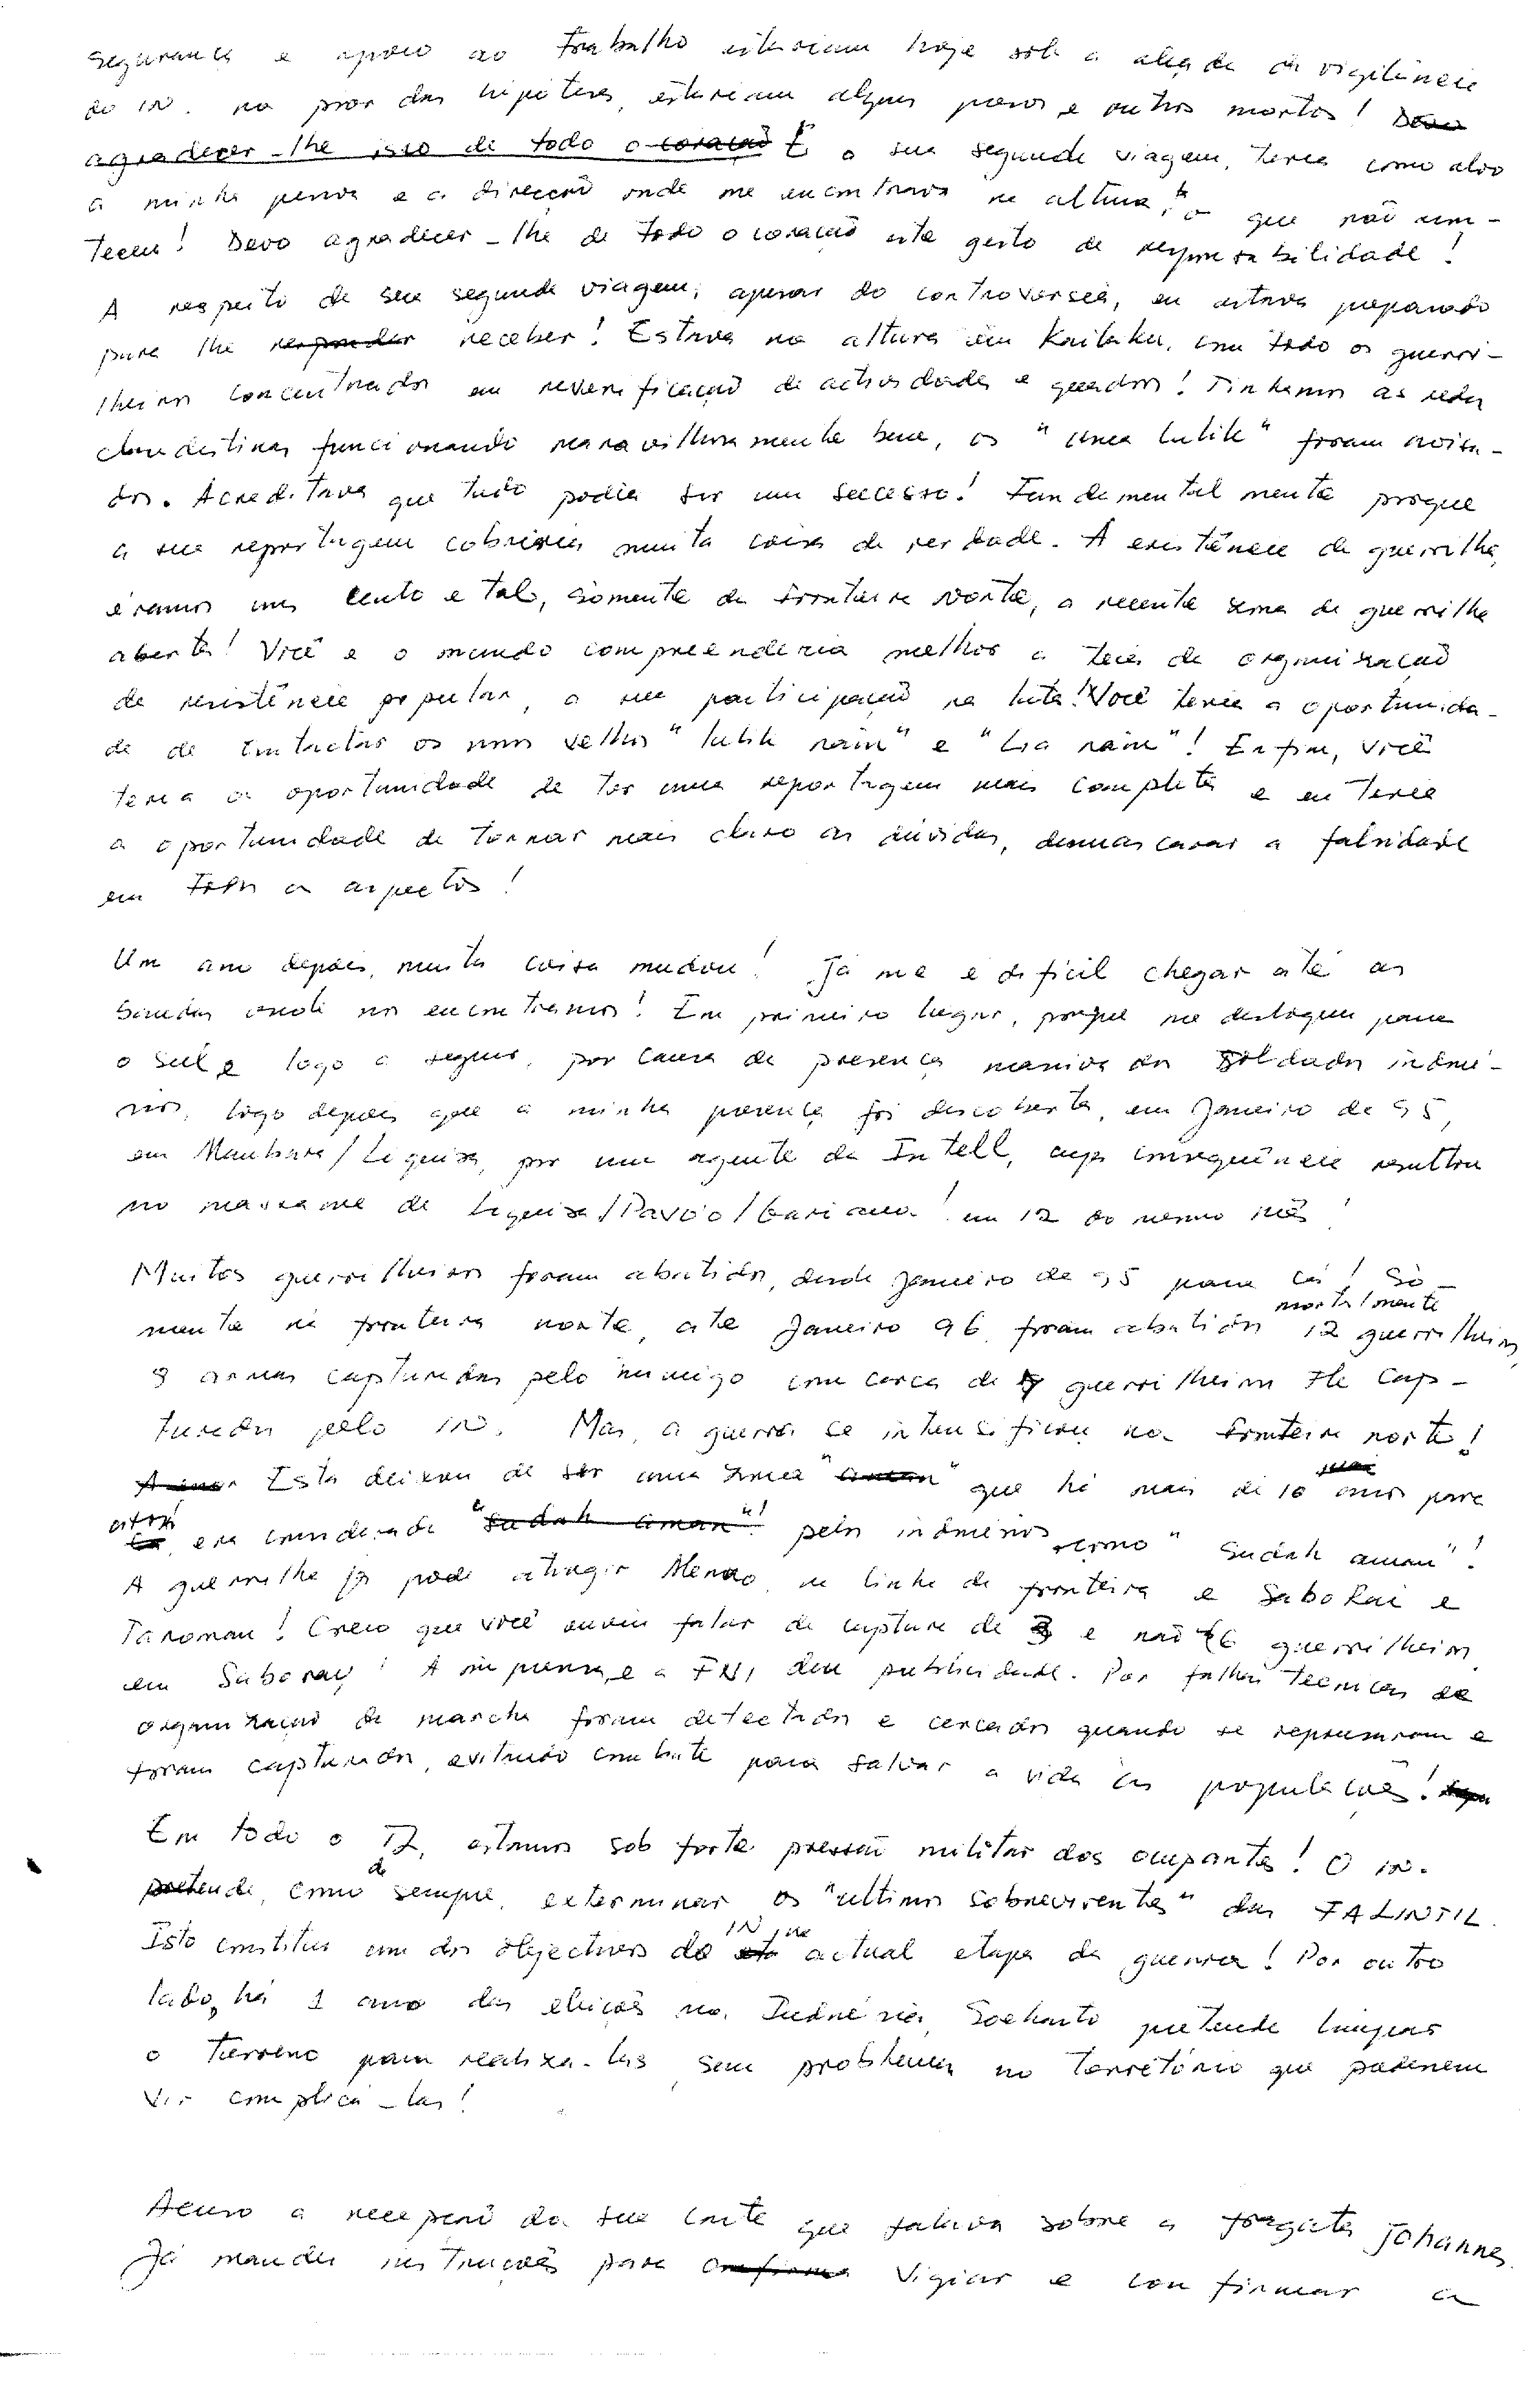 segurança e apoio ao trabalho estariam hoje sob a alçada da vigilância
do IN. na pior das hipóteses, estariam alguns presos e outros mortos! Devo
agradecer-lhe isso de todo o coração E a sua segunda viagem, teria como alvo
a minha pessoa e a direcção onde me encontrava na altura, o que não acon-
teceu! Devo agradecer-lhe de todo o coração este gesto de responsabilidade!
A respeito de sua segunda viagem, apesar do controversia, eu estava preparado
para lhe responder receber! Estava na altura em Kailaku, com todo os guerri-
lheiros concentrados em reverificação de actividades e quadros! Tinhamos as redes
clandestinas funcionando maravilhosamente bem, os " lulik" foram avisa-
dos. Acreditava que tudo podia ser um sucesso! Fundamentalmente porque
a sua reportagem cobriria muita coisa de verdade. A existência da guerrilha,
éramos uns cento e tal, sómente da fronteira norte, a recente zona de guerrilha
aberta! Você e o mundo compreenderia melhor a teia de organização
de resistência popular, a sua participação na luta! Você teria a oportunida-
de de contactar os nossos velhos "lulik nain" e "lia nain"! Enfim, você
teria a oportunidade de ter uma reportagem mais completa e eu teria
a oportunidade de tornar mais claro as dúvidas, desmascarar a falsidade
em todos os aspectos!
Um ano depois, muita coisa mudou! Já me é dificil chegar até as
bandas onde nos encontramos! Em primeiro lugar, porque me desloquei para
o sul e logo a seguir, por causa da presença massiva dos soldados indoné-
sios, logo depois que a minha presença foi descoberta, em Janeiro de 95,
em Maubara/Liquisa, por um agente da Intell, cuja consequência resultou
no massacre de Liquisa/Darvão/Gariana! em 12 do mesmo mês!
Muitos guerrilheiros foram abatidos, desde Janeiro de 95 para cá! Só-
mente na fronteira norte, até Janeiro 96, foram abatidos mortalmente 12 guerrilheiros,
9 armas capturadas pelo inimigo com cerca de guerrilheiros cap-
turados pelo IN. Mas, a guerra se intensificou na fronteira norte!
Esta deixou de ser uma zona que há mais de 10 anos para
era considerada "Sudah aman"! pelos indonésios como "Sudah aman"!
A guerrilha já pode atingir Memo, na linha de fronteira e Saborai e
Taroman! Creio que você ouviu falar da captura de 3 e não 6 guerrilheiros,
em Saboray! A imprensa e a TVI deu publicidade. Por falhas tecnicas de
organização da marcha foram detectados e cercados quando se repousaram e
foram capturados, evitando combate para salvar a vida das populações!
Em todo o TL, estamos sob forte pressão militar dos ocupantes! O IN.
pretende, como de sempre, exterminar os "ultimos sobreviventes" das FALINTIL.
Isto constitui um dos objectivos do IN, na actual etapa da guerra! Por outro
lado, há 1 ano das eleições na Indonésia, Soeharto pretende limpar
o terreno para realiza-las, sem problemas no território que poderiem
vir complicá-las!
Acuso a recepção da sua carta que falava sobre a fragata Johannes.
Já mandei instruções para confirmar vigiar e confirmar a